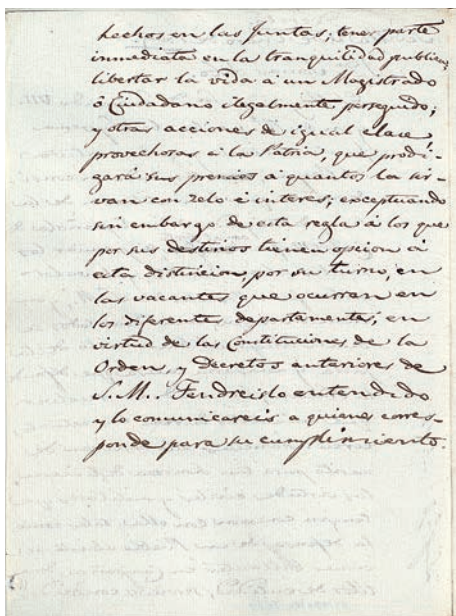 hechos en las Juntas; tener parte
inmediata en la tranquilidad publica;
libertar la vida á un Magistrado
ó Ciudadano ilegalmente perseguido;
y otras acciones de igual clase,
provechosas á la Patria, que prodi-
gará sus premios a quantos la sir-
van con zelo é interes; exceptuando
sin embargo de esta regla á los que
por sus destinos tienen opcion á
esta distincion, por su turno, en
las vacantes que ocurran en
los diferentes departamentos, en
virtud de las Constituciones de la
Orden, y Decretos anteriores de
S. M. Tendreislo entendido
y lo comunicareis a quienes corres-
ponde para su cumplimiento.